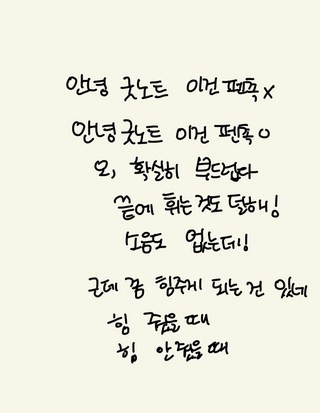 안녕 굿노트 이건 펜촉 x
안녕 굿노트 이건 펜촉 o
오, 확실히 부드럽다
끝에 휘는것도 덜해!
소음도 없는데!
근데 꼼 힘주게 되는 건 있네
힘 줬을 때
힘 안줬을 때